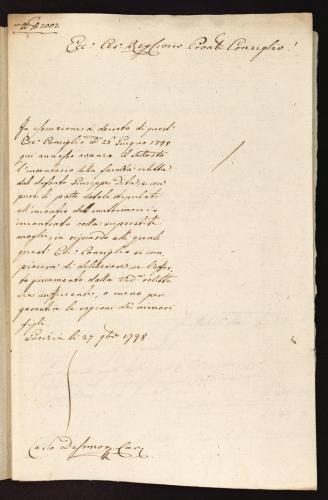 2002
Ecc.º Ces.º Regº Civico Provle Consiglio!
In esecuzione à decreto di quest'
Ecc.º Consiglio dd.º 28 Giugno 1798
qui annesso avanza il sottosto
l'inventario della facoltà relitta
dal defonto Giuseppe e così
pure li patti dotali stipulati
all'incontro dell matrimonio
incontrato colla superstite
moglie, in riguardo alle quali
quest' Ecc.º Consiglio si com-
piacerà di deliberare, se l'offer-
to pavamento della Vedª relitta
sia sufficiente, o meno per
garantire le ragioni dei minori
figli.
li 27 9bre 1798
Carlo